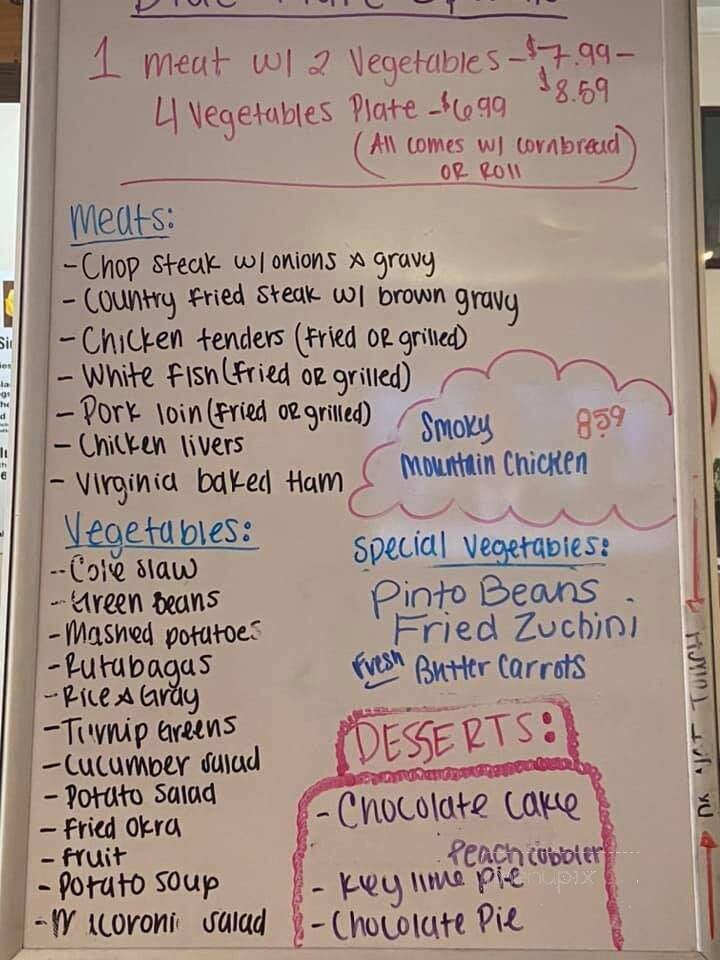 Blue Plate Specials
1 meat w/ 2 Vegetables - $7.99 -
$8.59
4 Vegetables Plate - $6.99
(All comes w/ cornbread
OR Roll)
Meats:
- Chop steak w/ onions & gravy
- Country fried steak w/ brown gravy
- Chicken tenders (fried OR grilled)
- White fish (fried OR grilled)
- Pork loin (fried OR grilled)
- Chicken livers
- Virginia baked Ham
Smoky 8.59
Mountain Chicken
Vegetables:
-- Cole slaw
- Green beans
- Mashed potatoes
- Rutabagas
- Rice & Gray
- Turnip Greens
- Cucumber salad
- Potato Salad
- Fried Okra
- fruit
- Potato soup
- Macoroni salad
Special Vegetables:
Pinto Beans
Fried Zuchini
Fresh Butter Carrots
DESSERTS:
- Chocolate Cake
Peach cobbler
- Key lime pie
- Chocolate Pie
DO NOT TOUCH
menupix